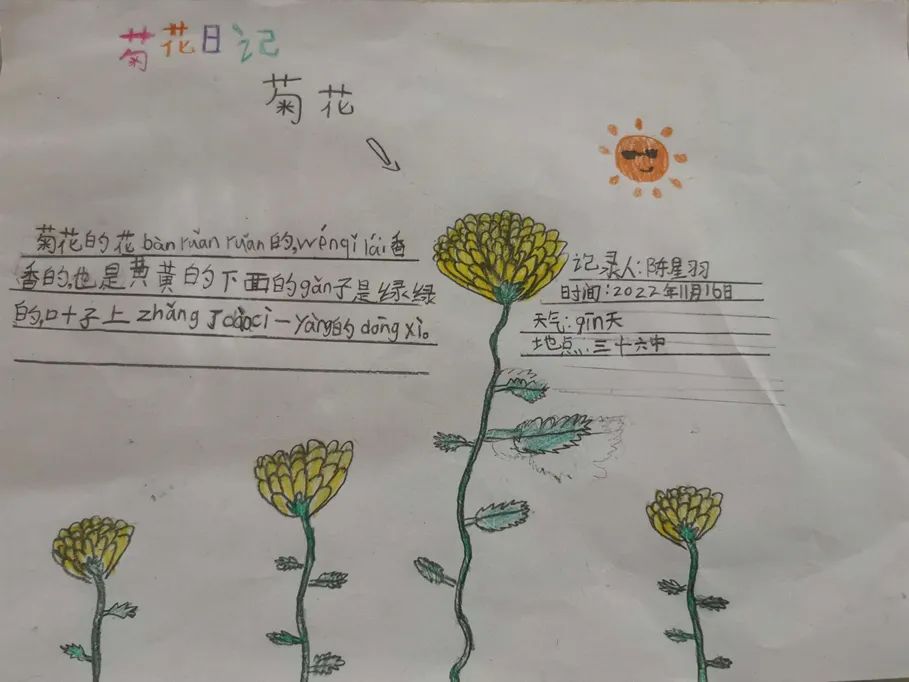 菊花日记
菊花
菊花的花bànruǎnruǎn的,wénqǐlái香
香的,也是黄黄的下面的gǎn子是绿绿
的,叶子上zhǎng了cì一yàng的dōngxi。
记录人:陈星羽
时间:2022年11月16日
天气:qīn天
地点:三十六中